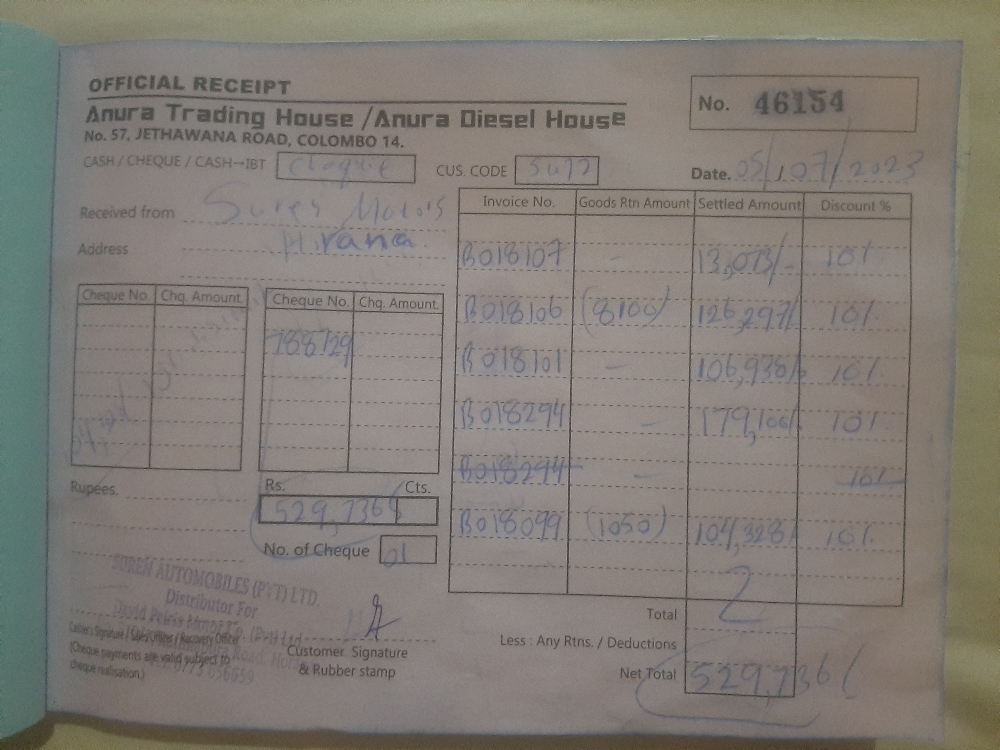 OFFICIAL RECEIPT
Anura Trading House /Anura Diesel House
No. 57, JETHAWANA ROAD, COLOMBO 14.
No. 46154
CASH / CHEQUE / CASH→IBT Cheque CUS. CODE
Date. 05/07/2023
Received from Suren Motors
Address Hirana
Cheque No. Chq. Amount.
Cheque No. Chq. Amount.
788729
Rupees.
Rs. Cts.
529,736/
No. of Cheque 01
Invoice No. Goods Rtn Amount Settled Amount Discount %
B018107 - 13,073/- 10%
B018106 (8100) 126,297/ 10%
B018101 - 106,938/ 10%
B018294 - 179,100/ 10%
B018294 - 10%
B018099 (1050) 104,328/ 10%
Total
Less : Any Rtns. / Deductions
Net Total 529,736/
SUREN AUTOMOBILES (PVT) LTD.
Distributor For
David Peiris Motor Co. (Pvt) Ltd
Cashier's Signature / Sales Officer / Recovery Officer
(Cheque payments are valid subject to
cheque realisation.)
Customer Signature
& Rubber stamp